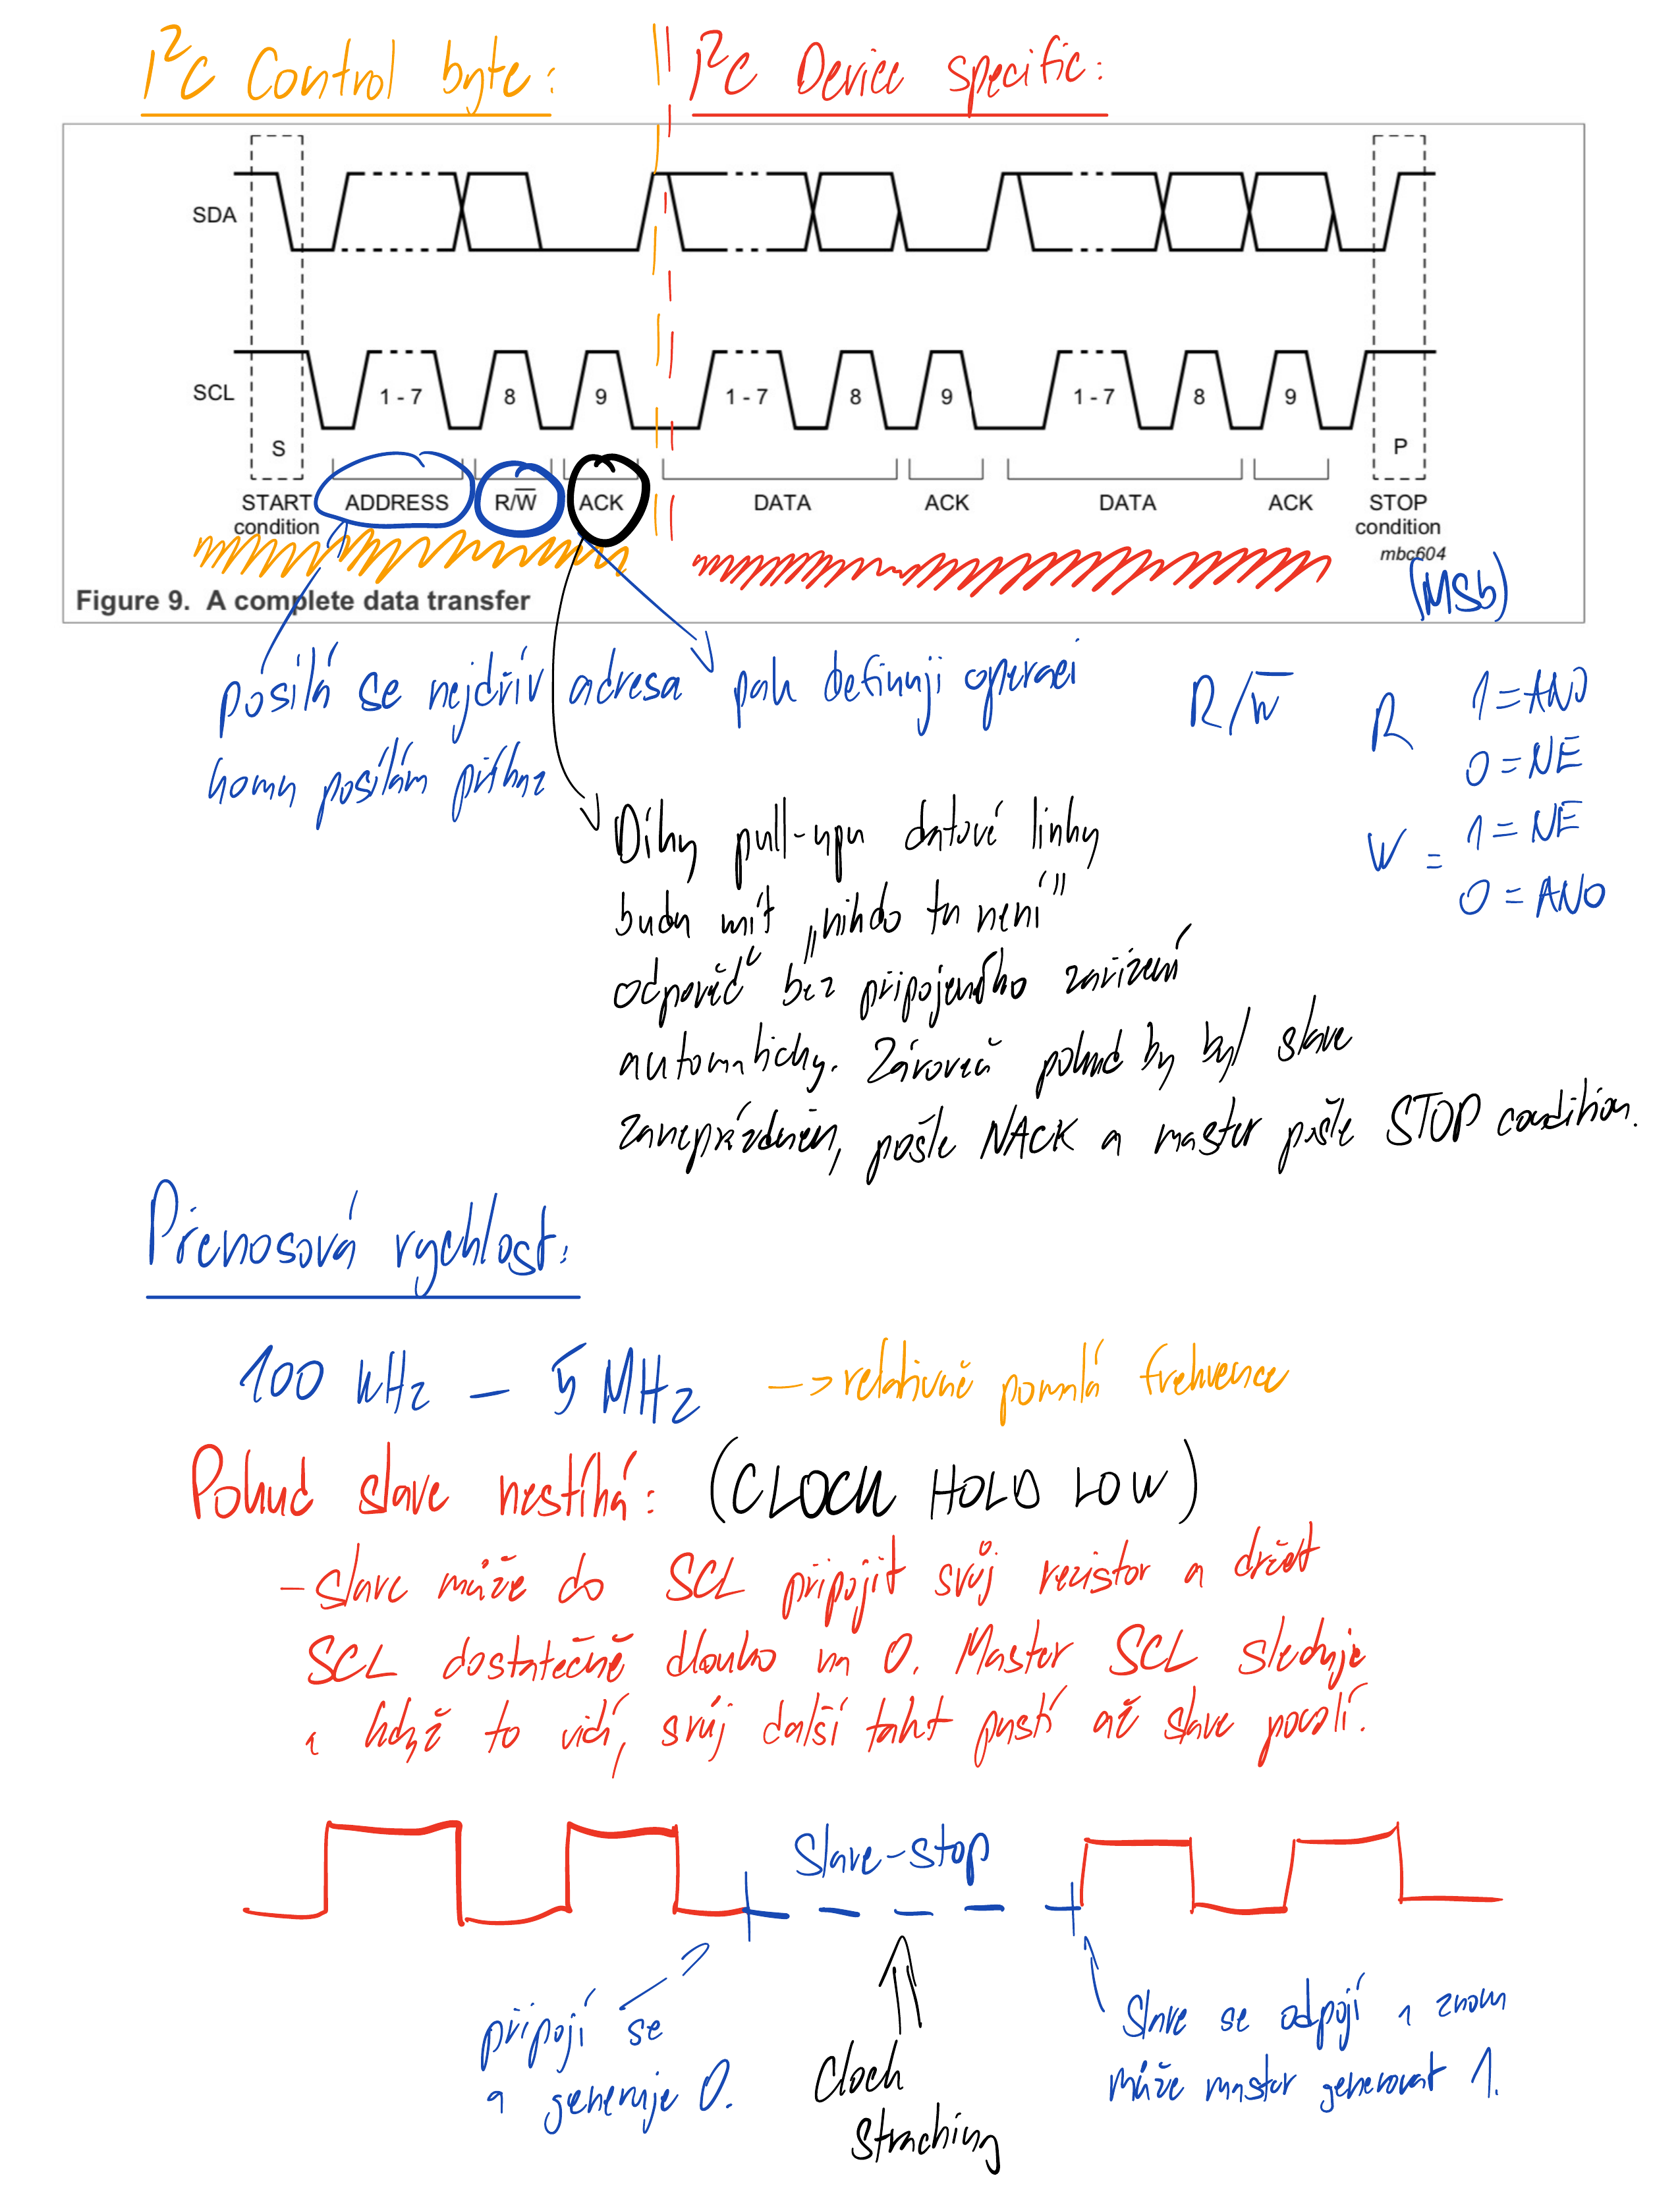 I²C Control byte:
I²C Device specific:
SDA
SCL
1 - 7
8
9
1 - 7
8
9
1 - 7
8
9
S
P
START condition
ADDRESS
R/W̅
ACK
DATA
ACK
DATA
ACK
STOP condition
mbc604
Figure 9. A complete data transfer
(MSb)
posílá se nejdřív adresa
komu posílám příkaz
pak definuji operaci
R/W̅
R
1 = ANO
0 = NE
W =
1 = NE
0 = ANO
Díky pull-upu datové linky
budu mít „nikdo tu není"
odpověď bez připojeného zařízení
automaticky. Zároveň pokud by byl slave
zaneprázdněn, pošle NACK a master pošle STOP condition.
Přenosová rychlost:
100 kHz – 5 MHz
-> relativně pomalá frekvence
Pokud slave nestíhá: (CLOCK HOLD LOW)
- Slave může do SCL připojit svůj rezistor a držet
SCL dostatečně dlouho na 0. Master SCL sleduje
a když to vidí, svůj další takt pustí až slave povolí.
Slave-stop
připojí se
a generuje 0.
Clock
Straching
Slave se odpojí a znovu
může master generovat 1.